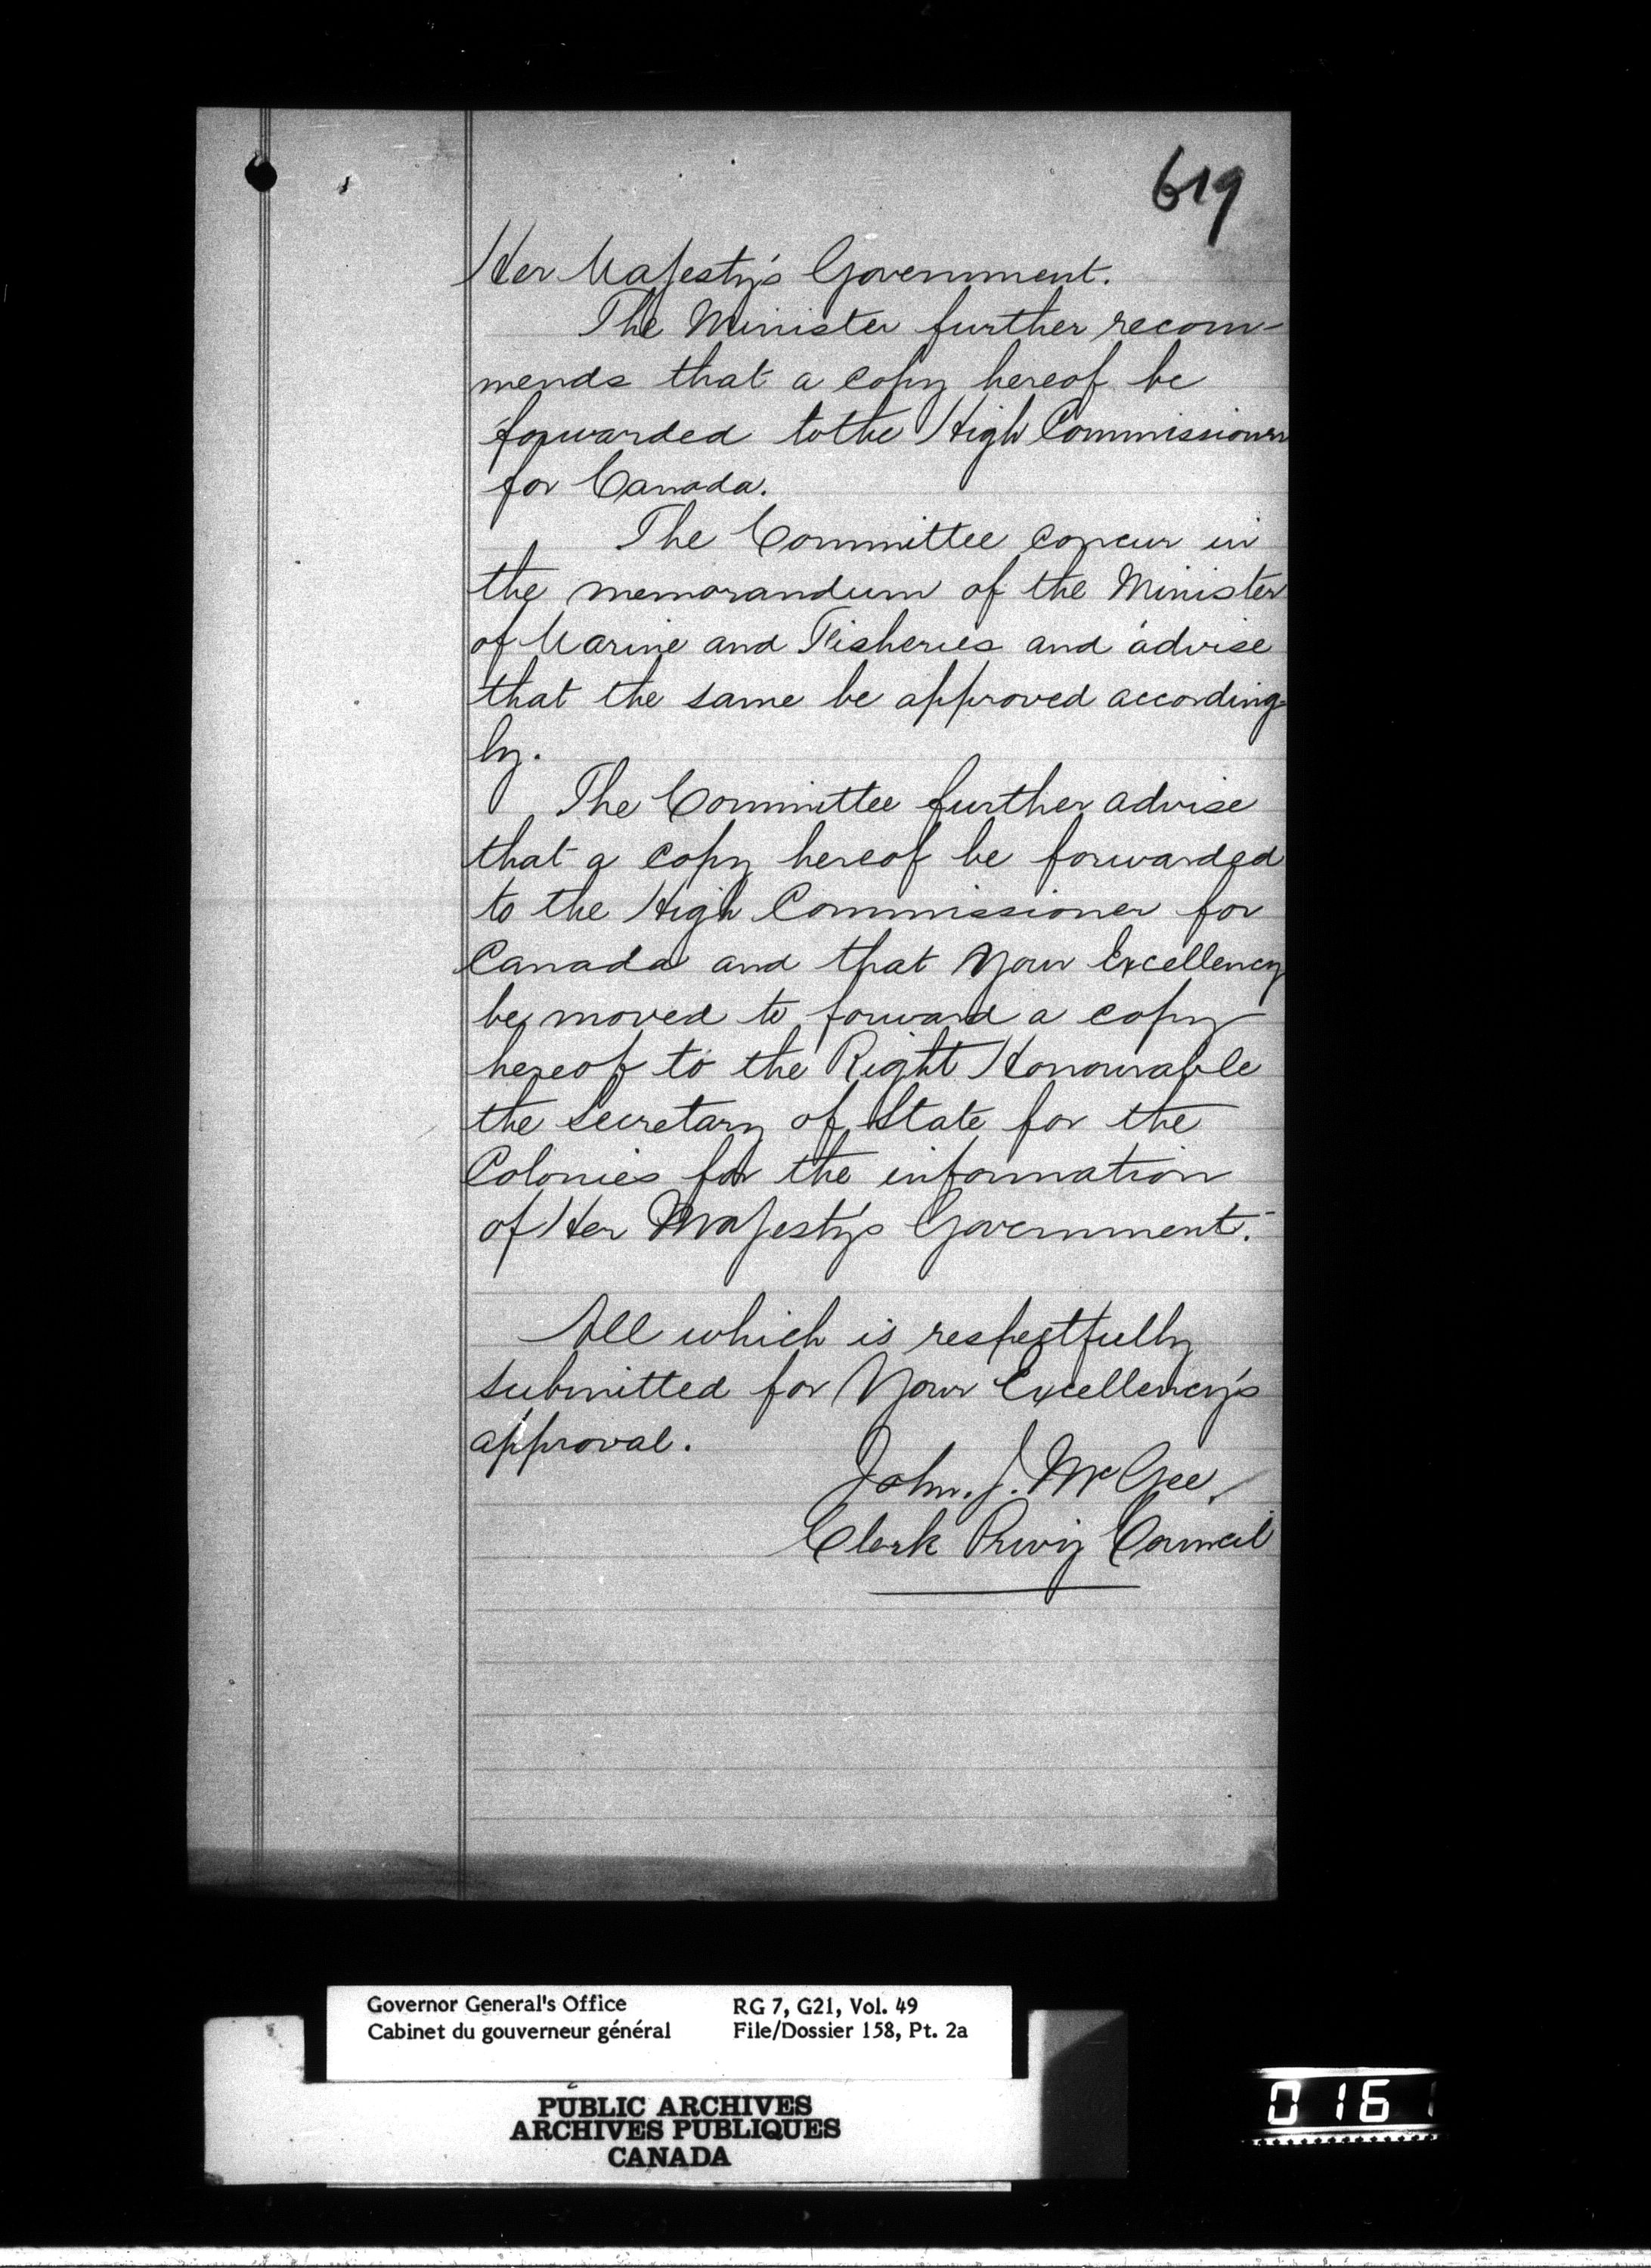 619
Her Majesty's Government.
The Minister further recom-
mends that a copy hereof be
forwarded to the High Commissioner
for Canada.
The Committee concur in
the memorandum of the Minister
of Marine and Fisheries and advise
that the same be approved according-
ly.
The Committee further advise
that a copy hereof be forwarded
to the High Commissioner for
Canada and that Your Excellency
be moved to forward a copy
hereof to the Right Honourable
the Secretary of State for the
Colonies for the information
of Her Majesty's Government.
All which is respectfully
submitted for Your Excellency's
approval.
John. J. McGee,
Clerk Privy Council
Governor General's Office RG 7, G21, Vol. 49
Cabinet du gouverneur général File/Dossier 158, Pt. 2a
PUBLIC ARCHIVES
ARCHIVES PUBLIQUES
CANADA
0161